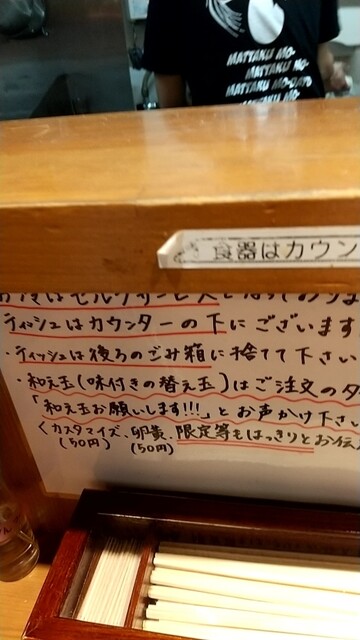 MATTAKU MO-
MATTAKU MO-
MATTAKU MO-
MATTAKU MO-
食器はカウン
お冷はセルフサービスとなっておりま
ティッシュはカウンターの下にございます
・ティッシュは後ろのごみ箱に捨てて下さい
・和え玉(味付きの替え玉)はご注文のタ
「和え玉お願いします!!!」とお声かけ下さい
〈カスタマイズ、卵黄、限定等もはっきりとお伝え
(50円) (50円)